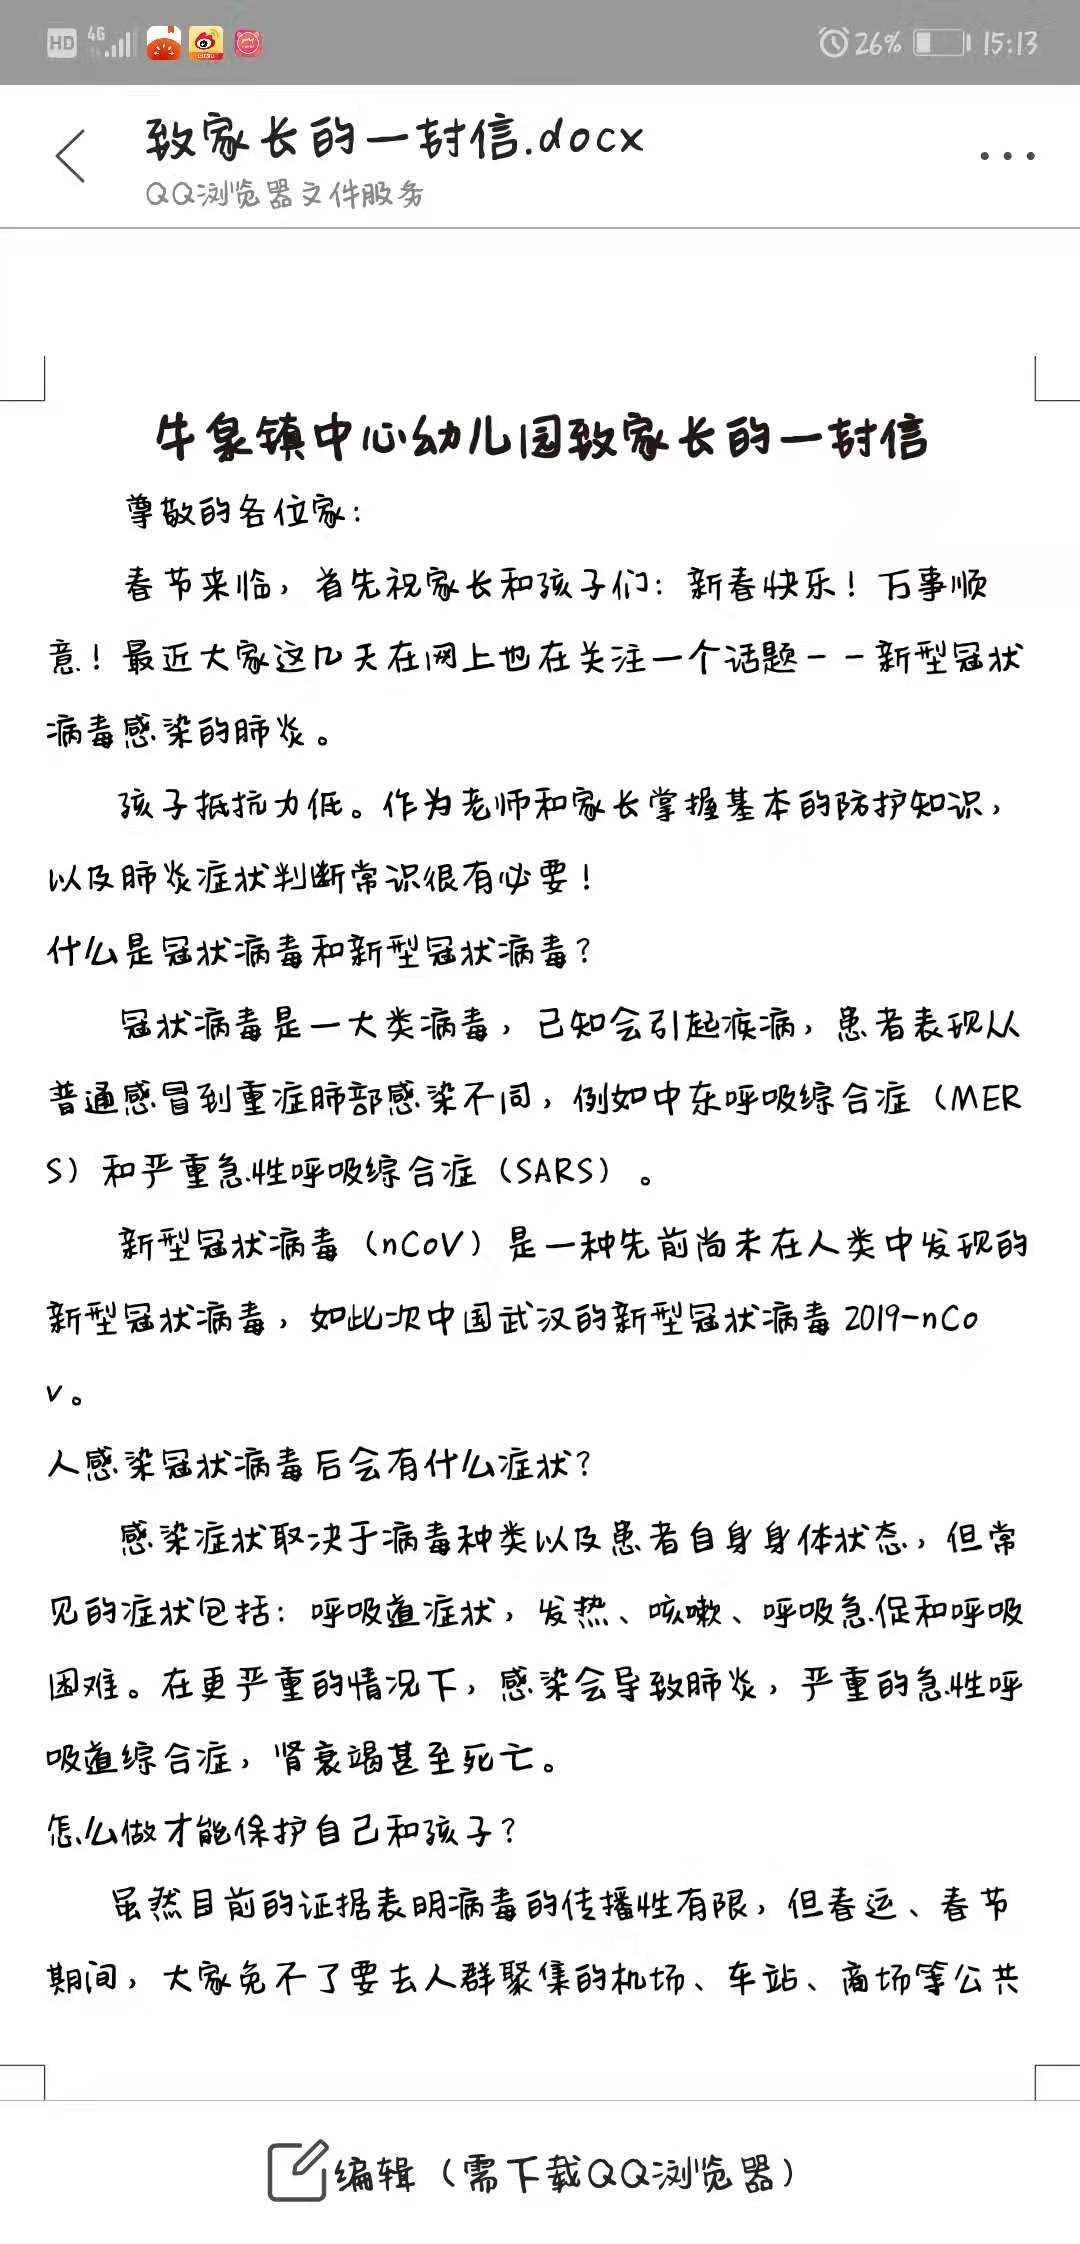 HD 4G 26% 15:13
致家长的一封信.docx
QQ浏览器文件服务
牛泉镇中心幼儿园致家长的一封信
尊敬的各位家：
春节来临，首先祝家长和孩子们：新春快乐！万事顺
意！最近大家这几天在网上也在关注一个话题--新型冠状
病毒感染的肺炎。
孩子抵抗力低。作为老师和家长掌握基本的防护知识，
以及肺炎症状判断常识很有必要！
什么是冠状病毒和新型冠状病毒？
冠状病毒是一大类病毒，已知会引起疾病，患者表现从
普通感冒到重症肺部感染不同，例如中东呼吸综合症（MER
S）和严重急性呼吸综合症（SARS）。
新型冠状病毒（nCoV）是一种先前尚未在人类中发现的
新型冠状病毒，如此次中国武汉的新型冠状病毒 2019-nCo
v。
人感染冠状病毒后会有什么症状？
感染症状取决于病毒种类以及患者自身身体状态，但常
见的症状包括：呼吸道症状，发热、咳嗽、呼吸急促和呼吸
困难。在更严重的情况下，感染会导致肺炎，严重的急性呼
吸道综合症，肾衰竭甚至死亡。
怎么做才能保护自己和孩子？
虽然目前的证据表明病毒的传播性有限，但春运、春节
期间，大家免不了要去人群聚集的机场、车站、商场等公共
编辑（需下载QQ浏览器）